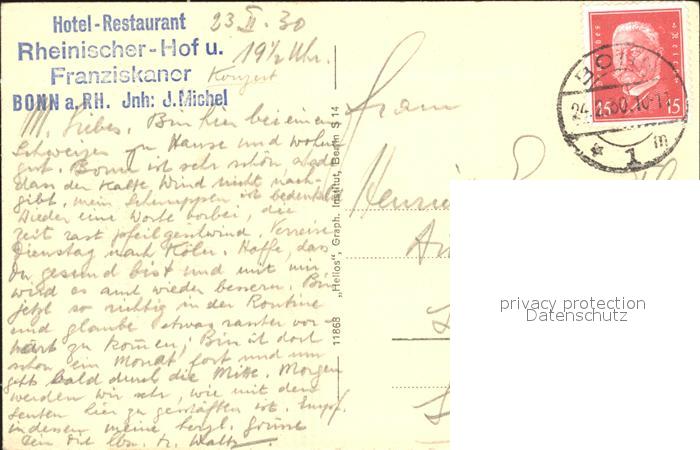 Hotel-Restaurant
Rheinischer-Hof u.
Franziskaner
BONN a. RH. Jnh: J. Michel
23 II. 30
19½ Uhr.
Konzert
M. Liebes. Bin hier bei einem
Schweizer zu Hause und wohne
gut. Bonn ist sehr schön
dass der kalte Wind nicht nach-
gibt. mein Schnuppen ist bedenkl.
Wieder eine Woche vorbei, die
Zeit rast pfeilgeschwind. Verreise
Dienstag nach Köln. Hoffe, dass
Du gesund bist und mit mir
wird es auch wieder bessern. Bin
jetzt so richtig in der Routine
und glaube etwas vor-
wärts zu kommen; Bin ja doch
schon ein Monat fort und nun
geht's bald durch die Mitte. Morgen
werden wir sehen, wie mit den
Leuten hier zu geschäften ist.
indessen meine herzl. Grüsse
Dein
11868 „Helios", Graph. Institut, Berlin S 14
Frau
BONN
24.2.30.10-11
* 1 m
Deutsches Reich
15 15
privacy protection
Datenschutz